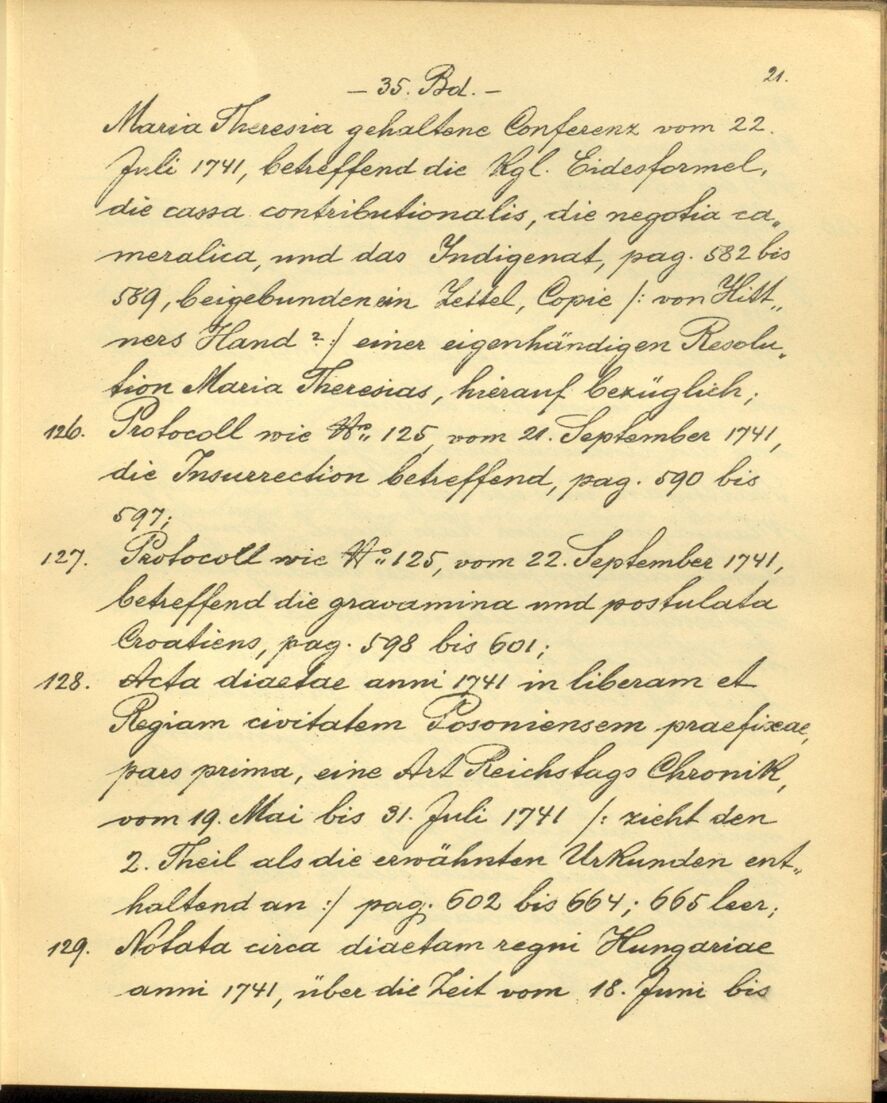 21.
– 35. Bd. –
Maria Theresia gehaltene Conferenz vom 22.
Juli 1741, betreffend die Kgl. Eidesformel,
die cassa contributionalis, die negotia ca„
meralica, und das Indigenat, pag. 582 bis
589, beigebunden ein Zettel, Copie /: von Hitt„
ners Hand ? :/ einer eigenhändigen Resolu„
tion Maria Theresias, hierauf bezüglich;
126. Protocoll wie No: 125, vom 21. September 1741,
die Insurrection betreffend, pag. 590 bis
597;
127. Protocoll wie No: 125, vom 22. September 1741,
betreffend die gravamina und postulata
Croatiens, pag. 598 bis 601;
128. Acta diaetae anni 1741 in liberam et
Regiam civitatem Posoniensem praefixae,
pars prima, eine Art Reichstags Chronik,
vom 19. Mai bis 31. Juli 1741 /: zieht den
2. Theil als die erwähnten Urkunden ent„
haltend an :/ pag. 602 bis 664; 665 leer;
129. Notata circa diaetam regni Hungariae
anni 1741, über die Zeit vom 18. Juni bis